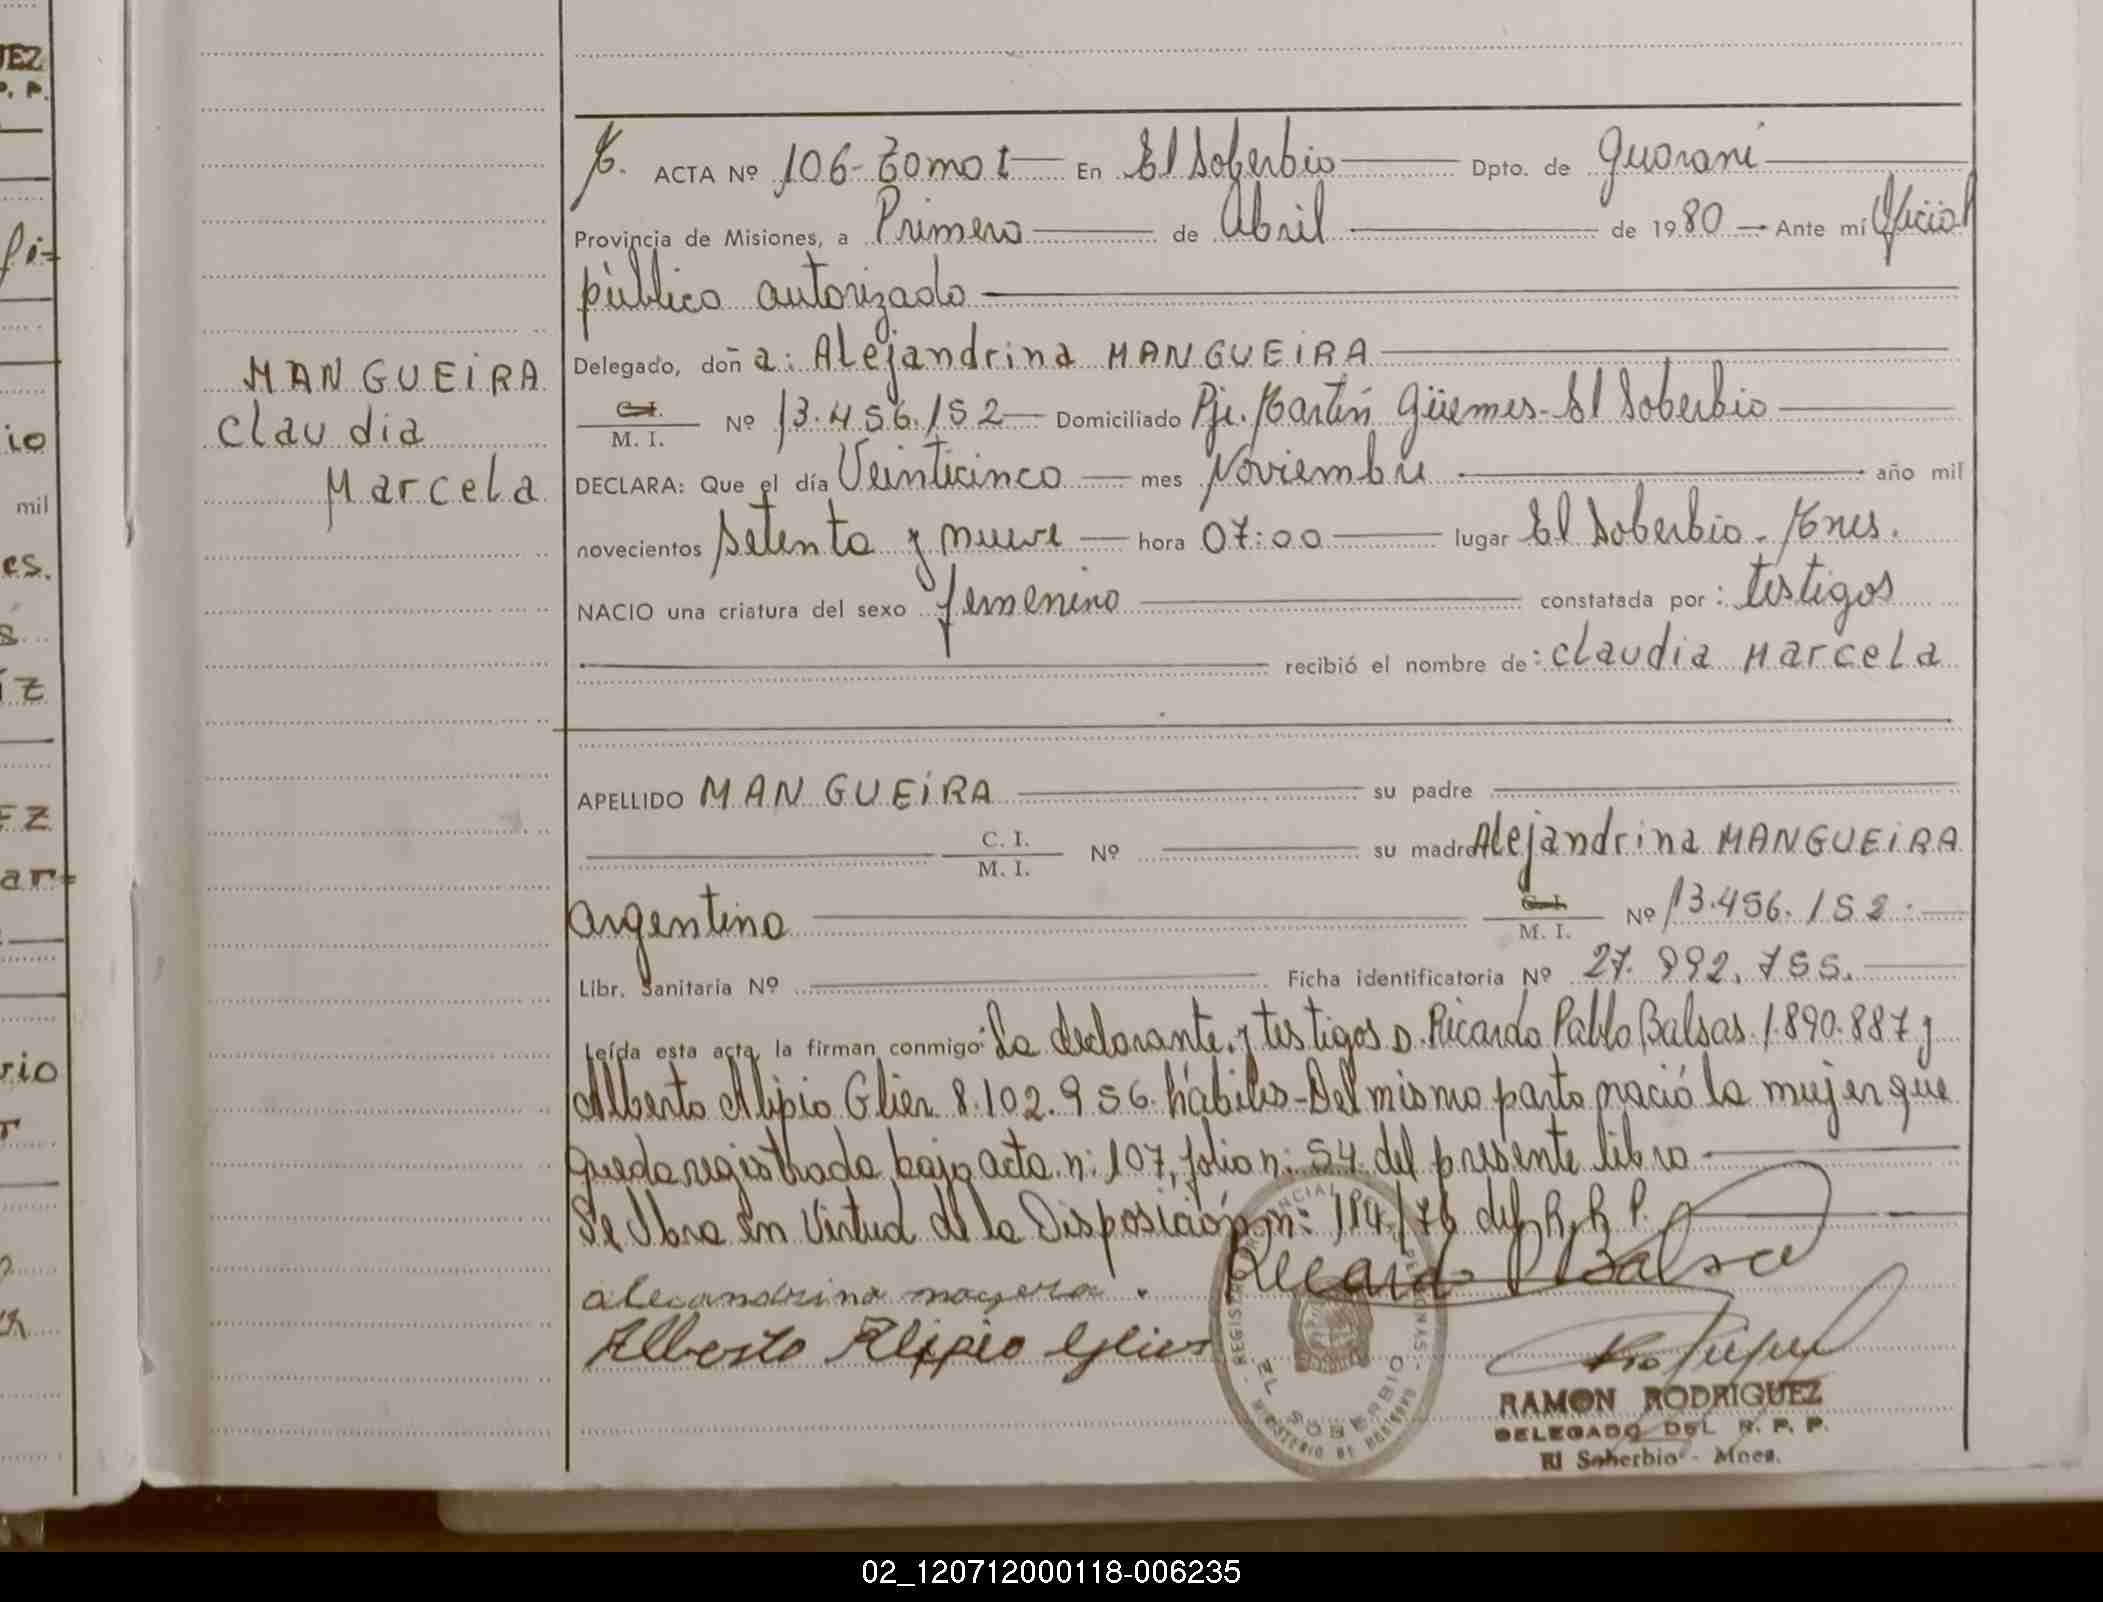 UEZ
P. P.
ACTA Nº 106 - Tomo I En El Soberbio Dpto. de Guaraní
Provincia de Misiones, a Primero de Abril de 1980 Ante mí Oficial
público autorizado
MANGUEIRA
Claudia
Marcela
Delegado, doña: Alejandrina MANGUEIRA
C.I.
M. I. Nº 13.456.152 Domiciliado Pje. Martín Güemes - El Soberbio
DECLARA: Que el día Veinticinco mes Noviembre año mil
novecientos setenta y nueve hora 07:00 lugar El Soberbio - Mnes.
NACIO una criatura del sexo femenino constatada por: testigos
recibió el nombre de: Claudia Marcela
APELLIDO MANGUEIRA su padre
C. I.
M. I. Nº su madre Alejandrina MANGUEIRA
argentina C. I.
M. I. Nº 13.456.152.
Libr. Sanitaria Nº Ficha identificatoria Nº 27.992.755.
Leída esta acta, la firman conmigo: La declarante y testigos D. Ricardo Pablo Balsas 1.890.887 y
Alberto Alipio Glier 8.102.956. hábiles - Del mismo parto nació la mujer que
queda registrada bajo acta n: 107, folio n: 54 del presente libro
Se labra en virtud de la Disposición n: 114/76 del R. P.
Ricardo P Balsa
alecandrina
Alberto Alipio
EL SOBERBIO
RAMON RODRIGUEZ
DELEGADO DEL R. P. P.
El Soberbio - Mnes.
02_120712000118-006235